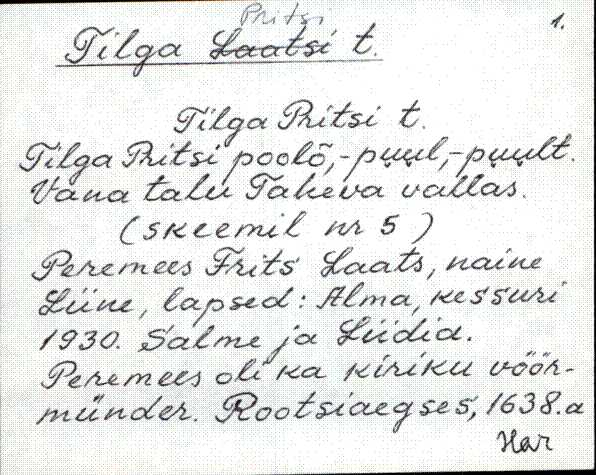 Pritsi
1.
Tilga Laatsi t.
Tilga Pritsi t.
Tilga Pritsi poolõ, -puul, -puult.
Vana talu Taheva vallas.
(skeemil nr 5)
Peremees Frits Laats, naine
Liine, lapsed: Alma, kes suri
1930. Salme ja Liidia.
Peremees oli ka kiriku vöör-
münder. Rootsiaegses, 1638.a
Har